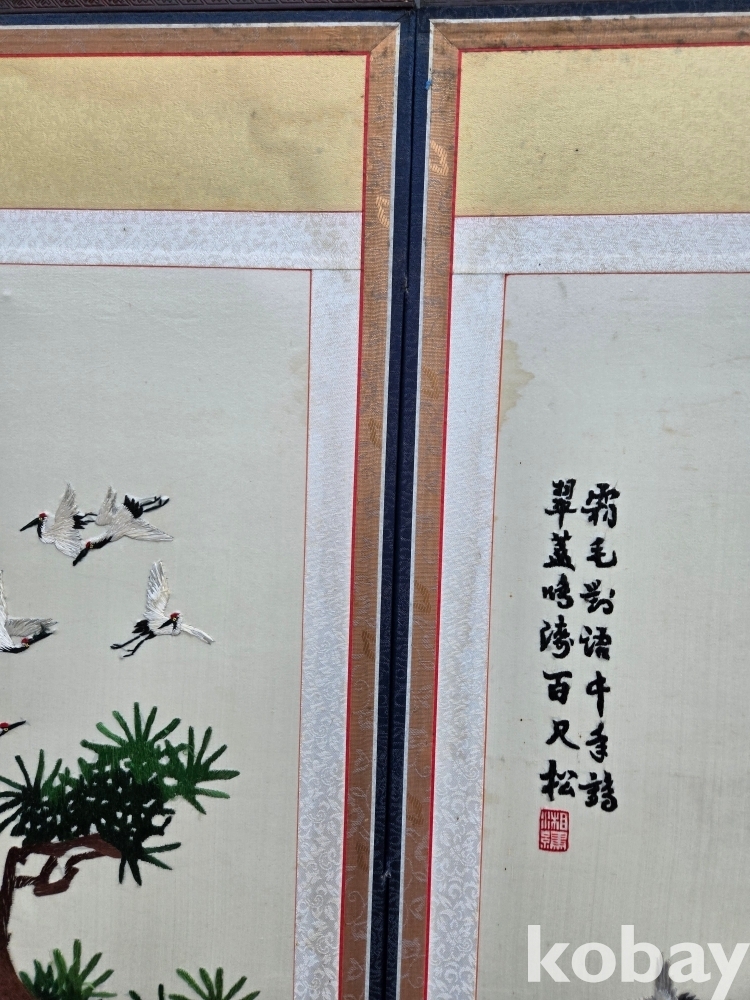 霜毛對語千年鶴
翠蓋鳴濤百尺松
湘繡
kobay